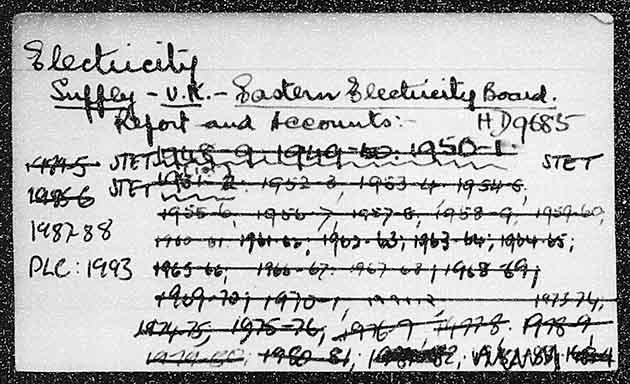 Electricity
Supply - U.K. - Eastern Electricity Board.
Report and Accounts:- HD9685
1984-5 STET 1948-9 1949-50: 1950-1 STET
1985-6 STET 1951-2: 1952-3, 1953-4. 1954-5,
1955-6, 1956-7, 1957-8, 1958-9, 1959-60,
1987-88 1960-61 1961-62, 1962-63; 1963-64; 1964-65;
PLC: 1993 1965-66; 1966-67; 1967-68; 1968-69;
1969-70; 1970-1, 1973-74,
1974-75, 1975-76, 1976-7, 1977-8. 1978-9
1979-80, 1980-81,